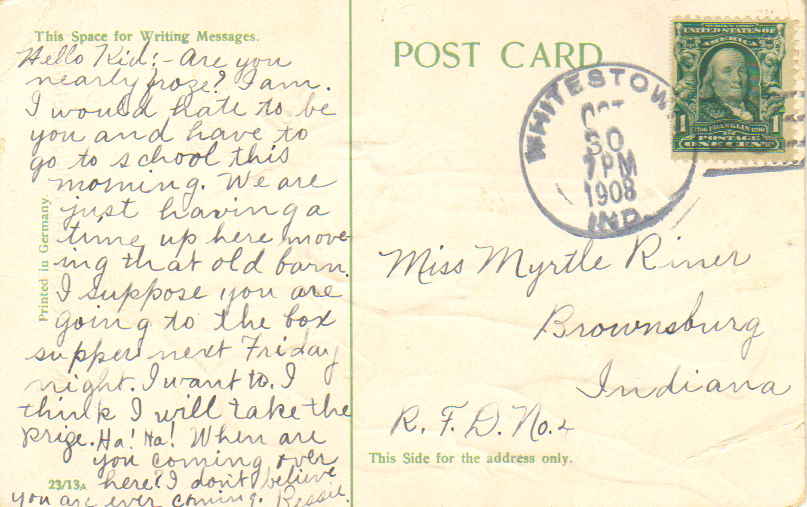 This Space for Writing Messages.
Hello Kid:- Are you
nearly froze? I am.
I would hate to be
you and have to
go to school this
morning. We are
just having a
time up here mov-
ing that old barn.
I suppose you are
going to the box
supper next Friday
night. I want to. I
think I will take the
prize. Ha! Ha! When are
you coming over
here? I don't believe
you are ever coming. Bessie.
Printed in Germany.
23/13A
POST CARD
WHITESTOWN
OCT
30
7 PM
1908
IND.
UNITED STATES OF
AMERICA
1 1
1706 FRANKLIN 1790
POSTAGE
ONE CENT
Miss Myrtle Riner
Brownsburg
Indiana
R. F. D. No. 2
This Side for the address only.